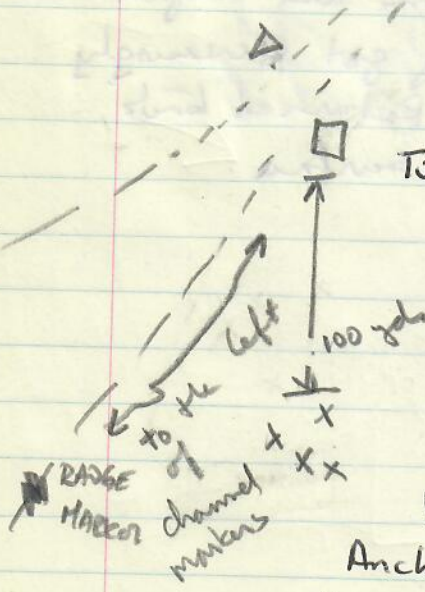 T3
100 yds
to the left
of
channel
markers
RANGE
MARKER
Anch